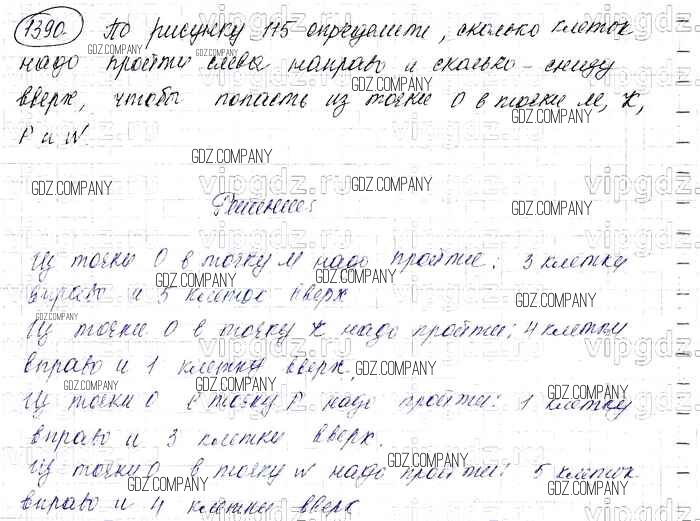 1390. По рисунку 115 определите, сколько клеток
надо пройти слева направо и сколько - снизу
вверх, чтобы попасть из точки О в точки М, К,
Р и N.
Решение:
Из точки О в точку М надо пройти: 3 клетку
вправо и 5 клеток вверх
Из точки О в точку К надо пройти: 4 клетки
вправо и 1 клетку вверх.
Из точки О в точку Р надо пройти: 1 клетку
вправо и 3 клетки вверх.
Из точки О в точку N надо пройти: 5 клеток
вправо и 4 клетки вверх
GDZ.COMPANY
vipgdz.ru